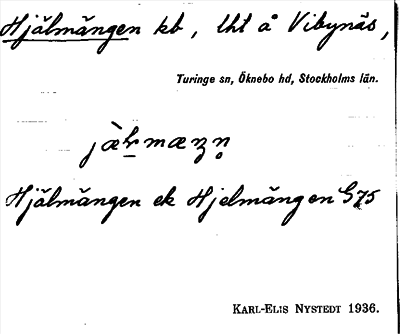 Hjälmängen kb, lht å Vibynäs,
Turinge sn, Öknebo hd, Stockholms län.
Hjälmängen ek Hjelmängen G75
KARL-ELIS NYSTEDT 1936.